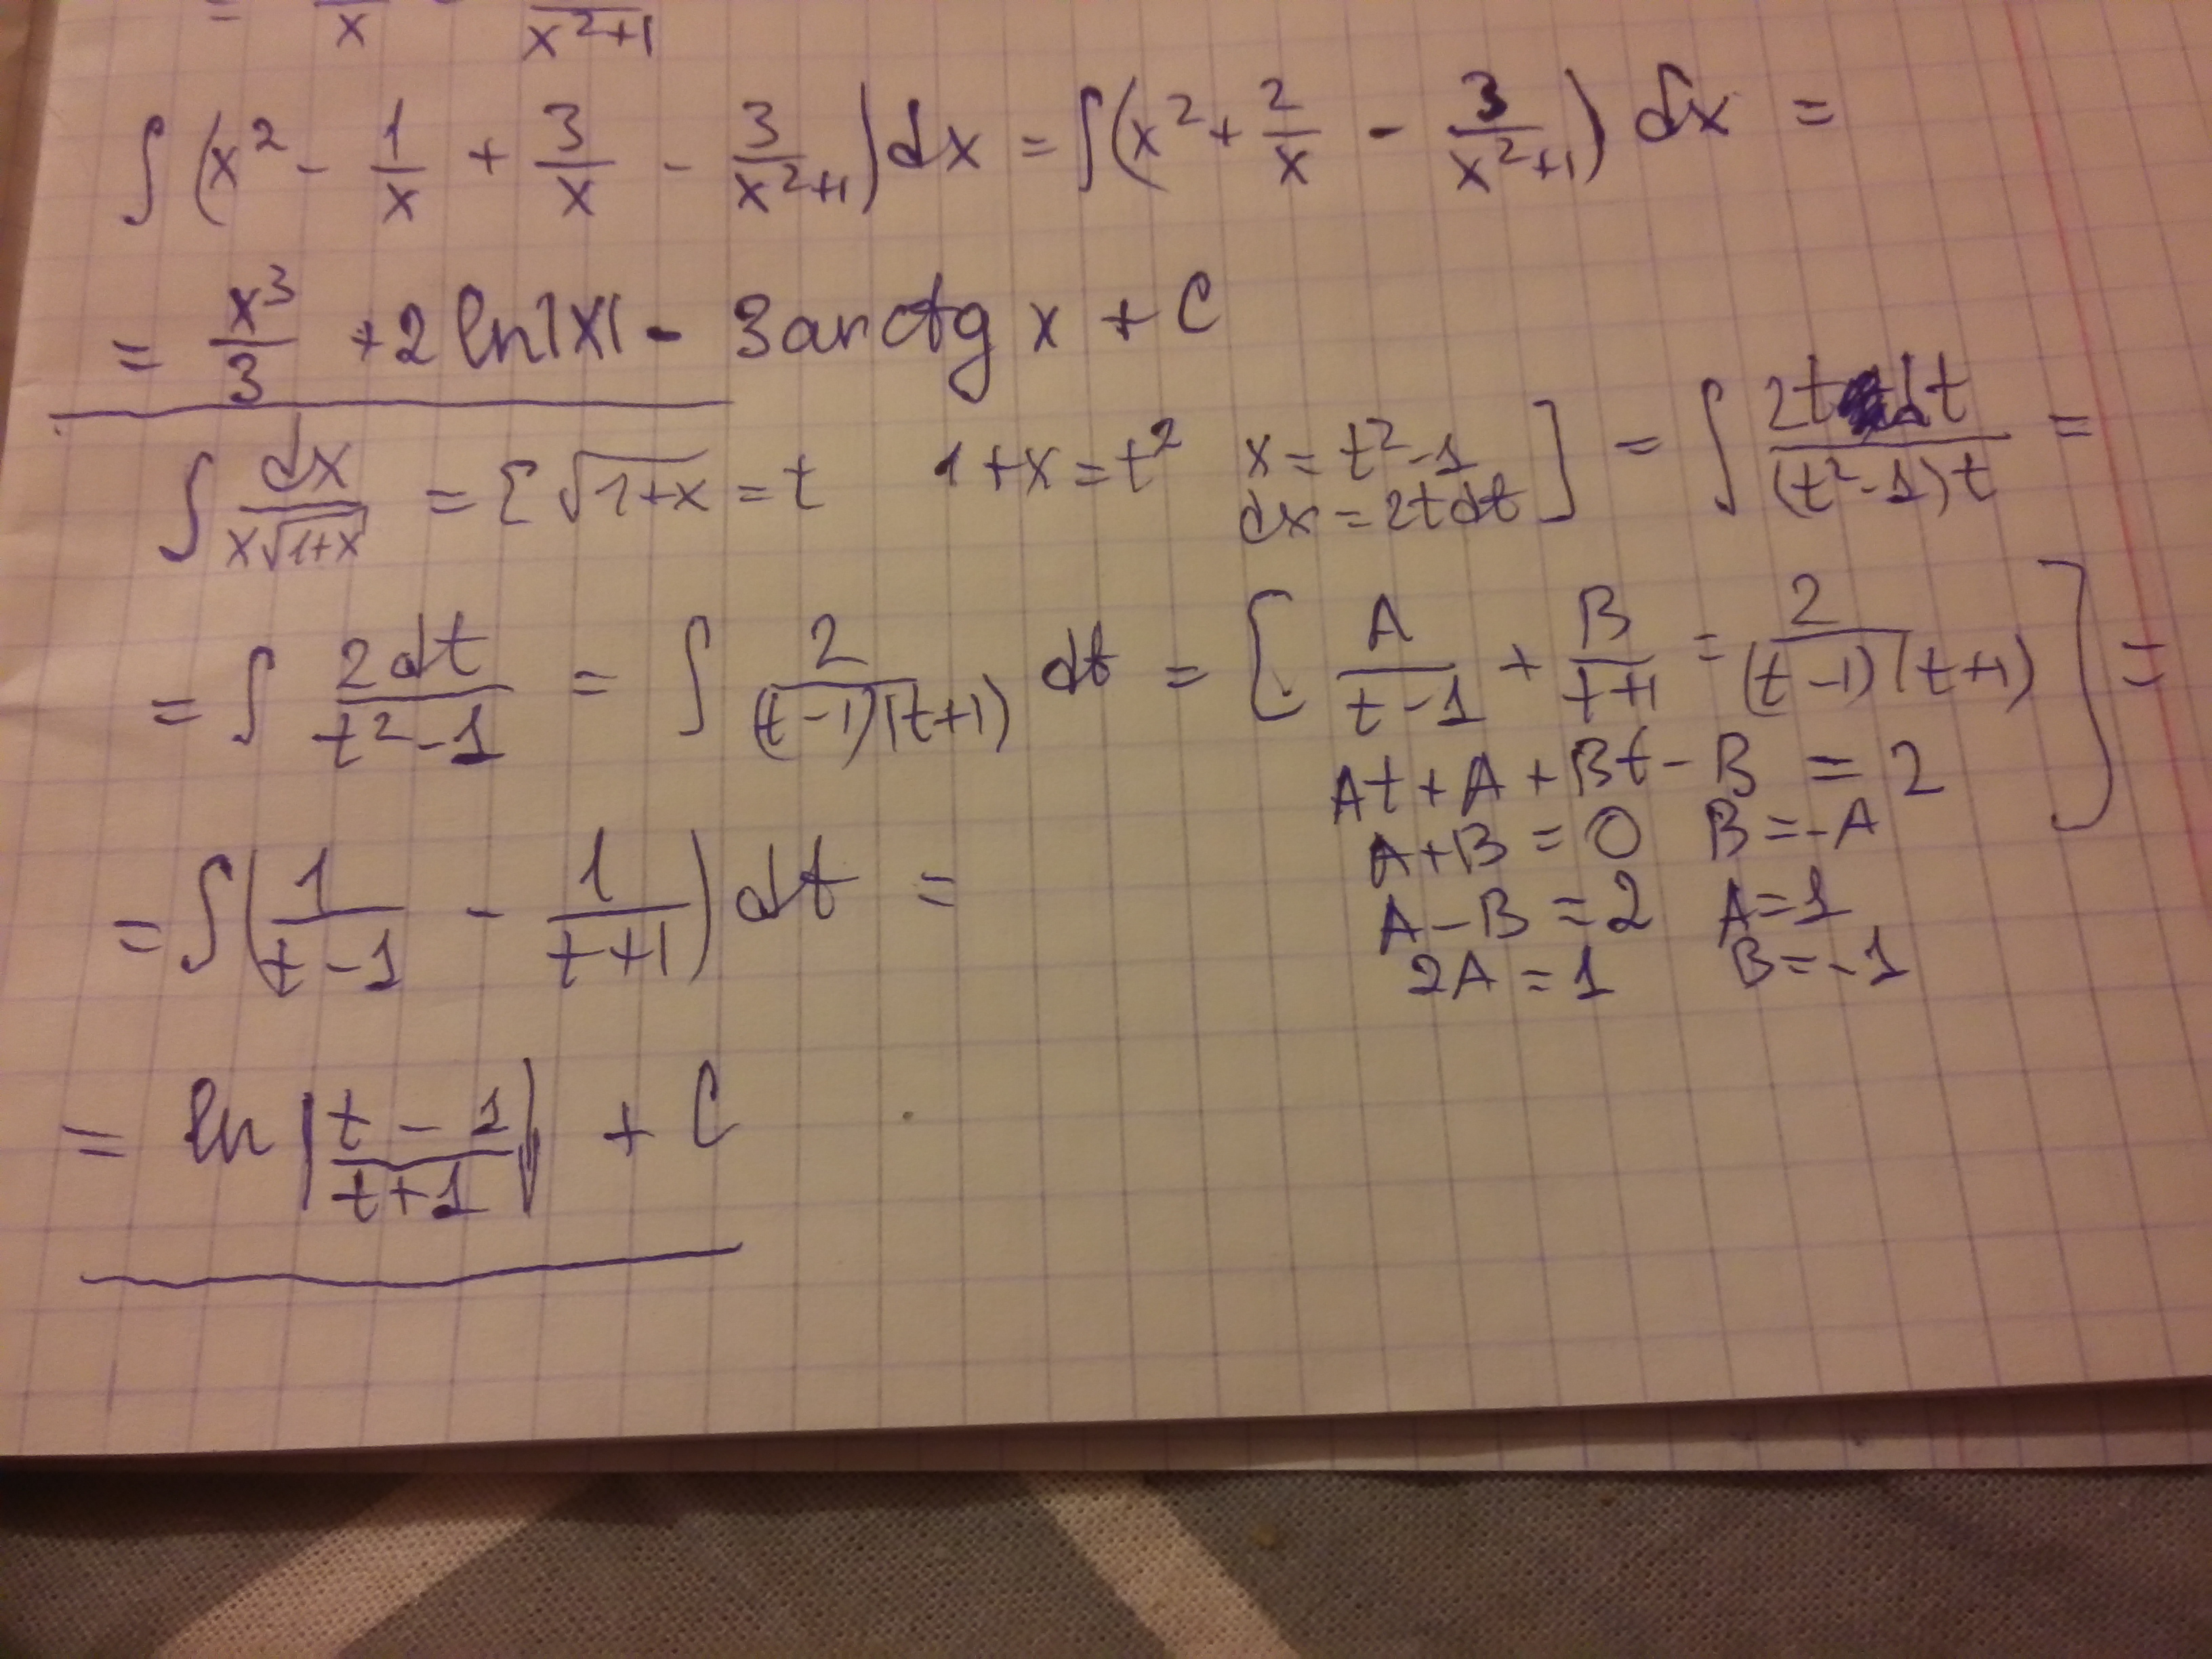 = /x - /x²+1
∫ (x² - 1/x + 3/x - 3/x²+1) dx = ∫(x² + 2/x - 3/x²+1) dx =
= x³/3 + 2 ln|x| - 3 arctg x + C
∫ dx/x√1+x = [ √1+x = t 1+x = t² x = t²-1 dx = 2t dt ] = ∫ 2t dt/(t²-1)t =
= ∫ 2dt/t²-1 = ∫ 2/(t-1)(t+1) dt = [ A/t-1 + B/t+1 = 2/(t-1)(t+1) ] =
At + A + Bt - B = 2
A+B = 0 B = -A
= ∫(1/t-1 - 1/t+1) dt =
A - B = 2 A = 1
2A = 1 B = -1
= ln |t-1/t+1| + C